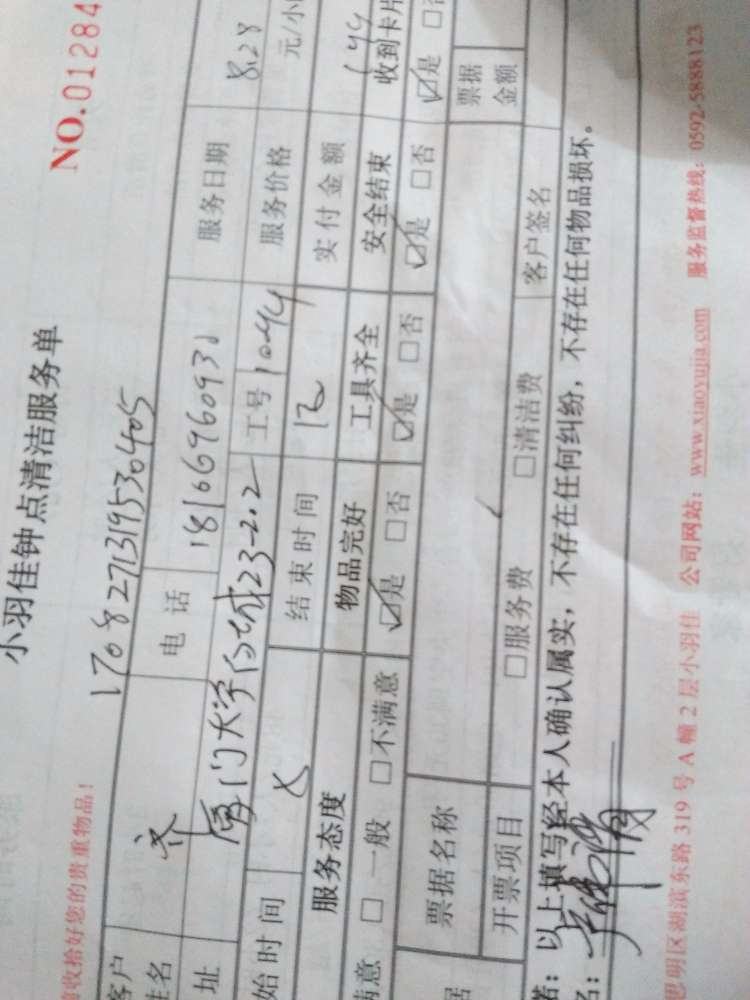 小羽佳钟点清洁服务单
NO.01284
请收拾好您的贵重物品！
1708271319530405
客户姓名 齐 电话 18166960931 服务日期 8.28
址 厦门大学白城23-2.2 工号 1044 服务价格 元/小
始时间 结束时间 12 实付金额 144
服务态度 物品完好 工具齐全 安全结束 收到卡片
满意 □一般 □不满意 ☑是 □否 ☑是 □否 ☑是 □否 ☑是 □否
票据名称 票据金额
据 开票项目 □服务费 □清洁费 客户签名
诺：以上填写经本人确认属实，不存在任何纠纷，不存在任何物品损坏。
名：
思明区湖滨东路 319 号 A 幢 2 层小羽佳 公司网站：www.xiaoyujia.com 服务监督热线：0592-5888123